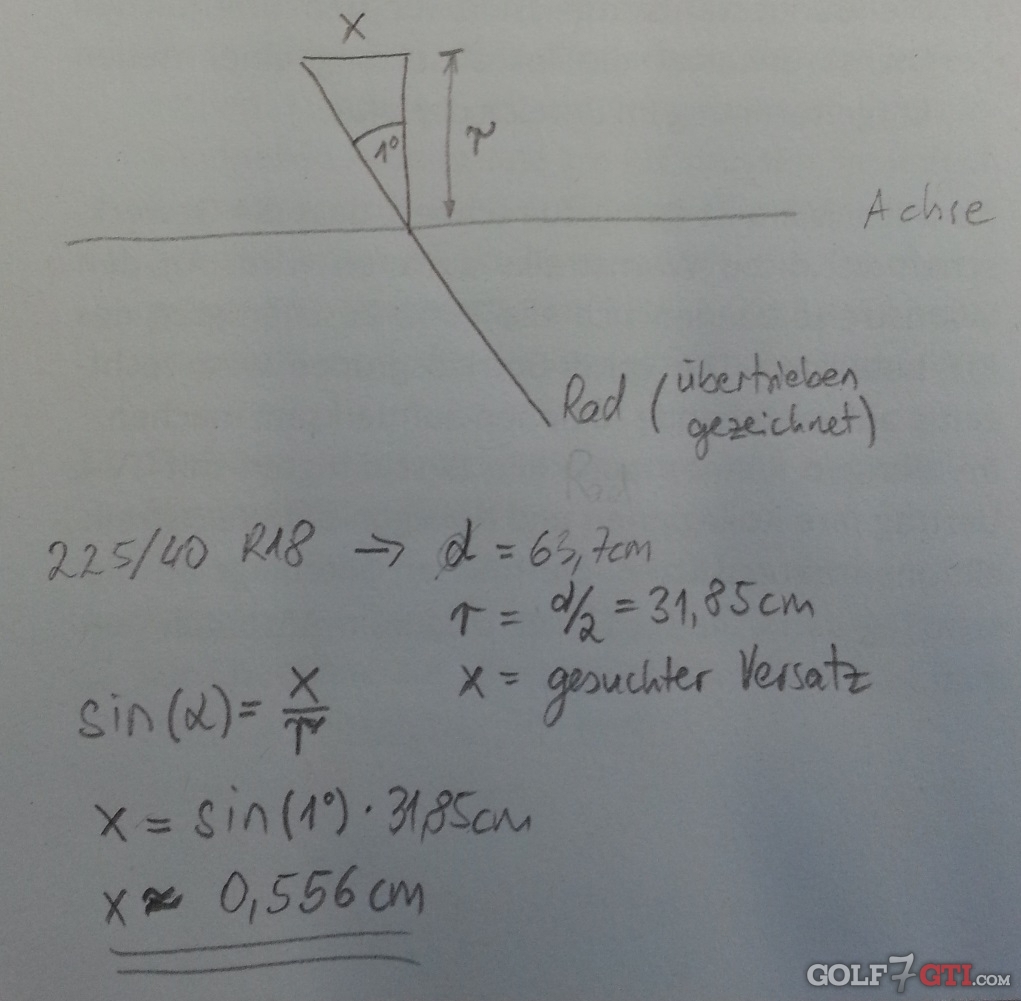 x
1° r
Achse
Rad (übertrieben
gezeichnet)
Rad
225/40 R18 → d = 63,7cm
r = d/2 = 31,85cm
x = gesuchter Versatz
sin(α) = x/r
x = sin(1°) · 31,85cm
x ≈ 0,556cm
GOLF7GTI.COM